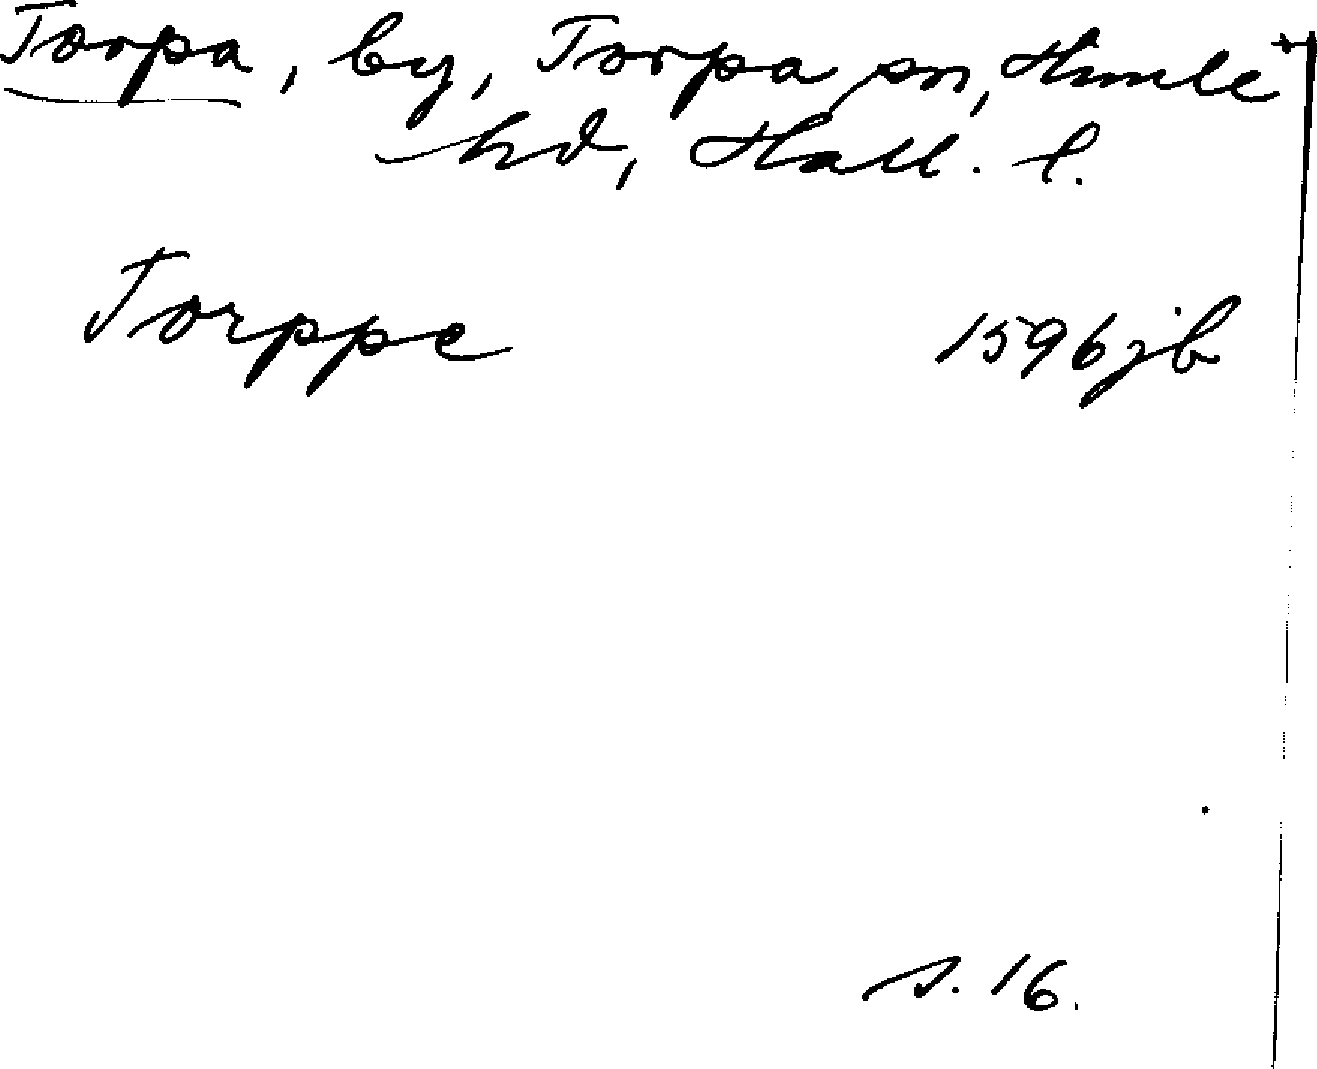 Torpa, by, Torpa sn, Himle
hd, Hall. l.
Torppe 1596 jb
s. 16.